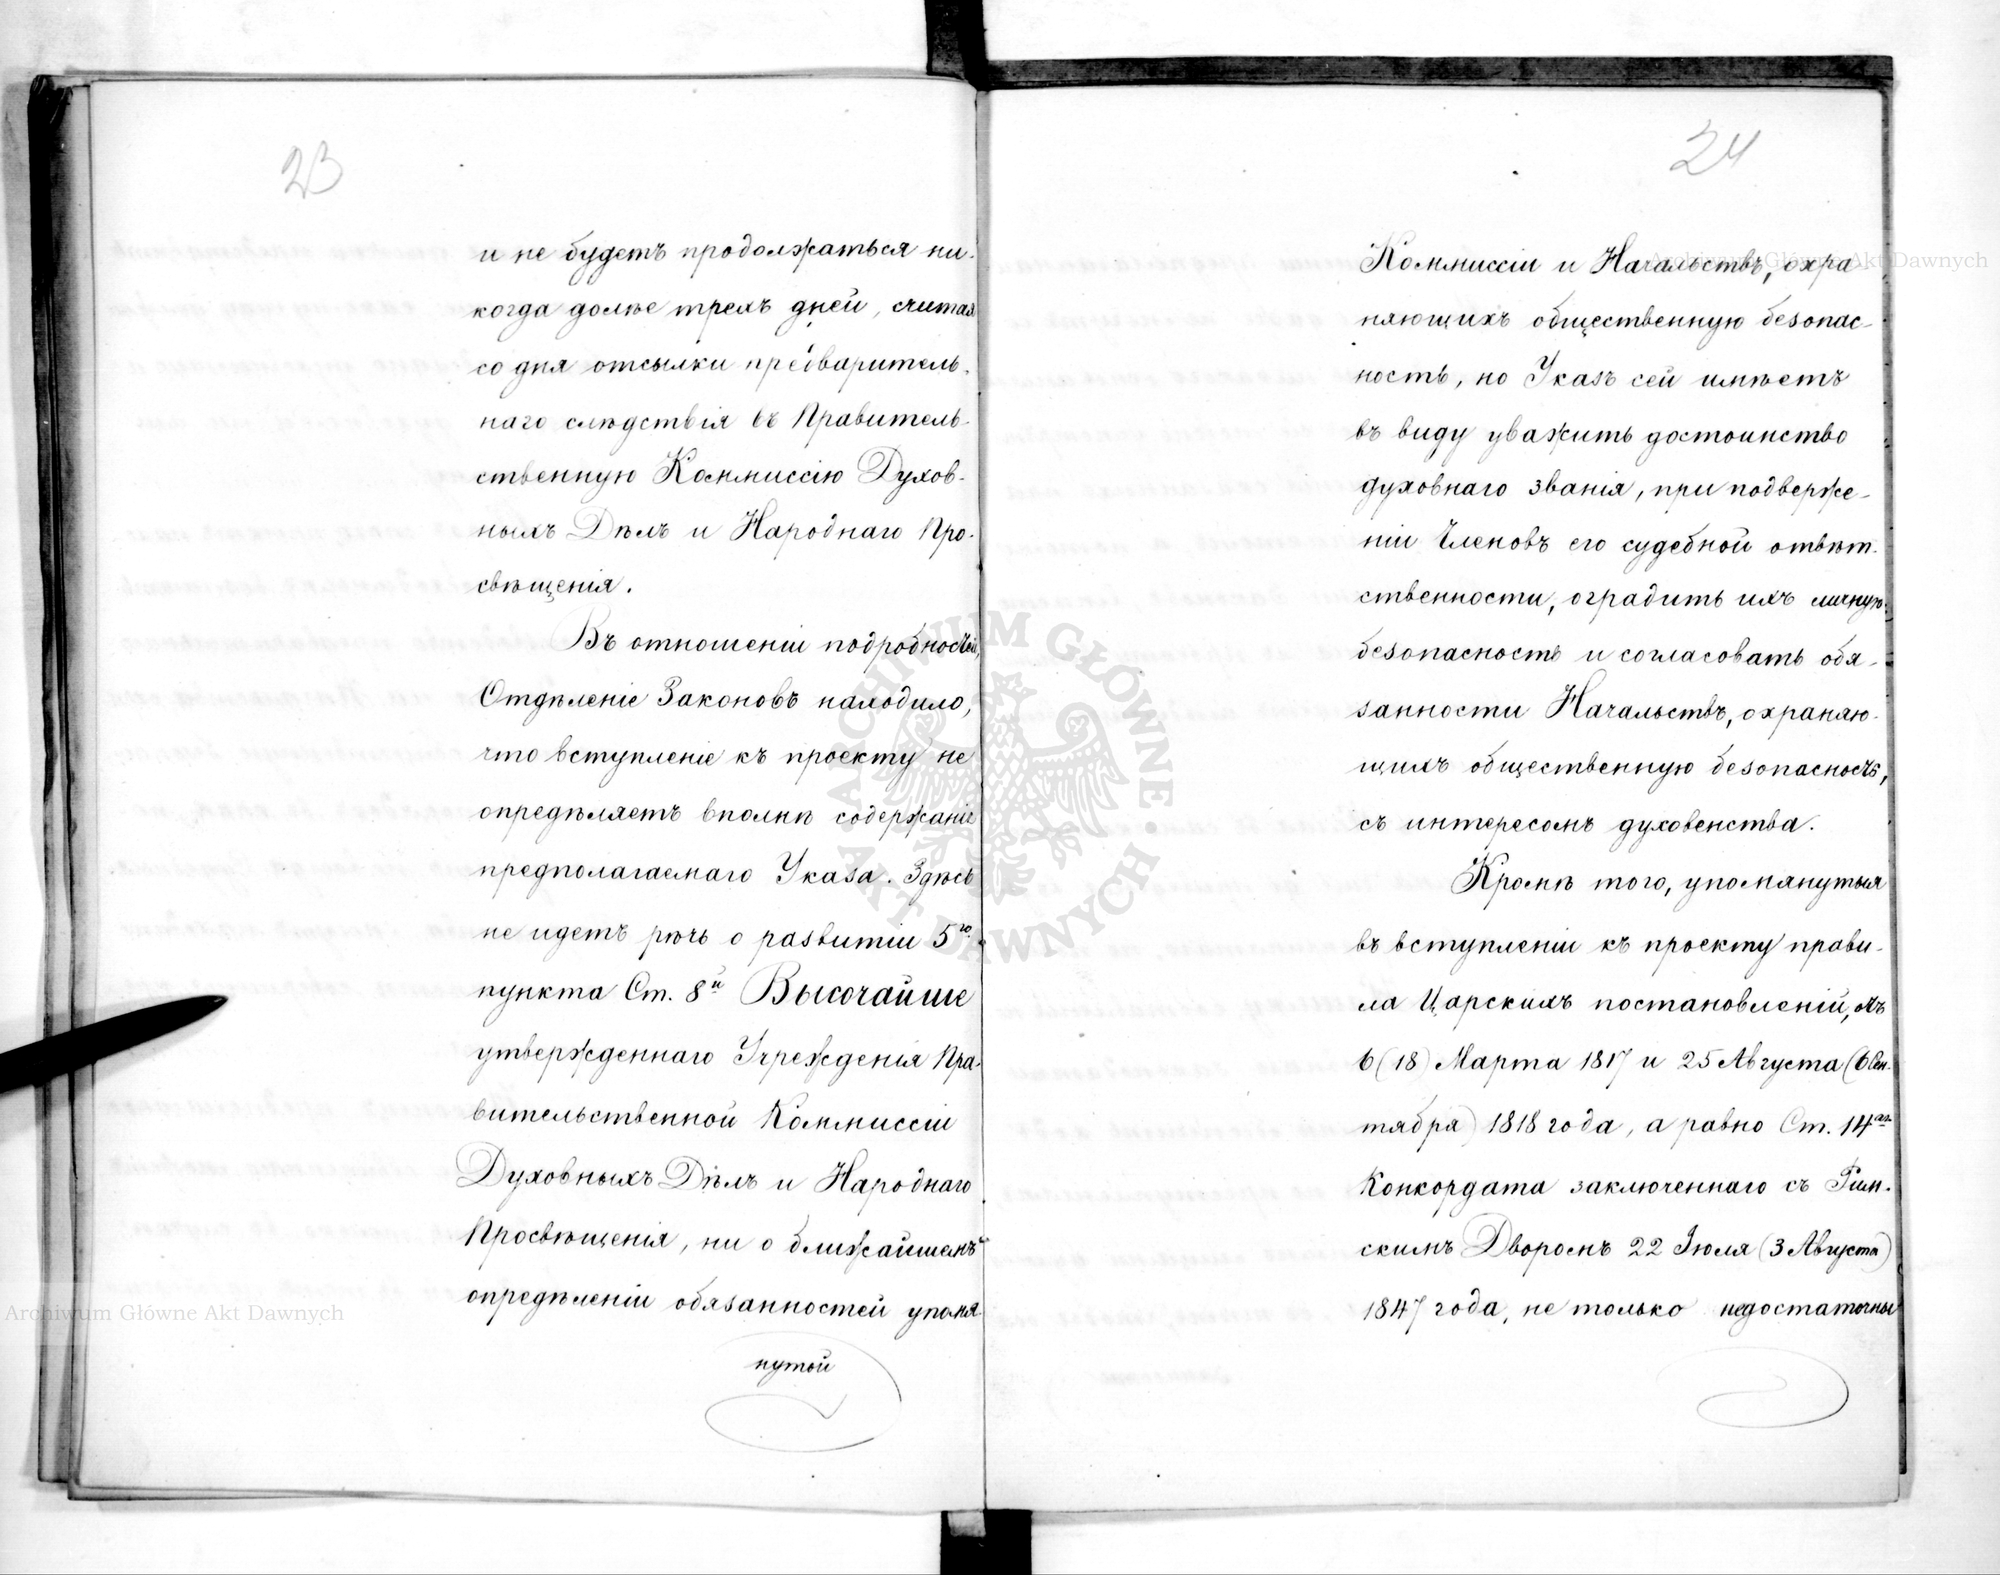 23
и не будетъ продолжаться ни-
когда долѣе трехъ дней, считая
со дня отсылки предваритель-
наго слѣдствія въ Правитель-
ственную Коммиссію Духов-
ныхъ Дѣлъ и Народнаго Про-
свѣщенія.
Въ отношеніи подробностей,
Отдѣленіе Законовъ находило,
что вступленіе къ проекту не
опредѣляетъ вполнѣ содержаніе
предполагаемаго Указа. Здѣсь
не идетъ рѣчь о развитіи 5го
пункта Ст. 8й Высочайше
утвержденнаго Учрежденія Пра-
вительственной Коммиссіи
Духовныхъ Дѣлъ и Народнаго
Просвѣщенія, ни о ближайшемъ
опредѣленіи обязанностей упомя-
нутой
24
Коммиссіи и Начальствъ, охра
няющихъ общественную безопас-
ность, но Указъ сей имѣетъ
въ виду уважить достоинство
духовнаго званія, при подверже-
ніи Членовъ его судебной отвѣт-
ственности, оградить ихъ личную
безопасность и согласовать обя-
занности Начальствъ, охраняю-
щихъ общественную безопасность,
съ интересомъ духовенства.
Кромѣ того, упомянутыя
въ вступленіи къ проекту прави-
ла Царскихъ постановленій, отъ
6 (18) Марта 1817 и 25 Августа (6 Сен-
тября) 1818 года, а равно Ст. 14ая
Конкордата заключеннаго съ Рим-
скимъ Дворомъ 22 Іюля (3 Августа)
1847 года, не только недостаточны
Archiwum Główne Akt Dawnych
Archiwum Główne Akt Dawnych
ARCHIWUM GŁÓWNE AKT DAWNYCH